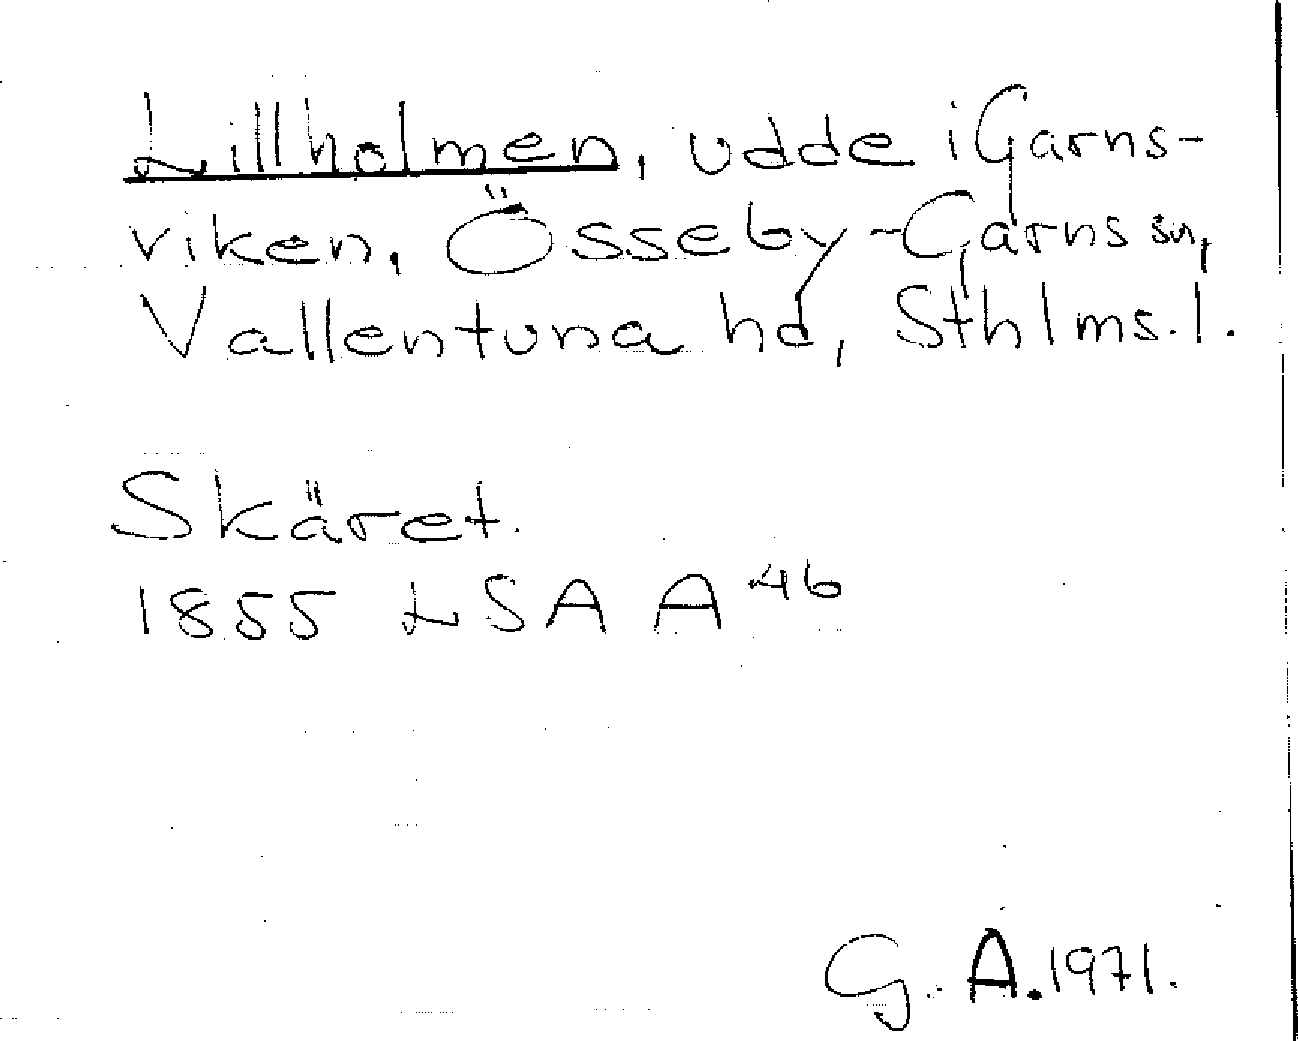 Lillholmen, udde i Garns-
viken, Össeby-Garns sn,
Vallentuna hd, Sthlms. l.
Skäret.
1855 LSA A 46
G. A. 1971.